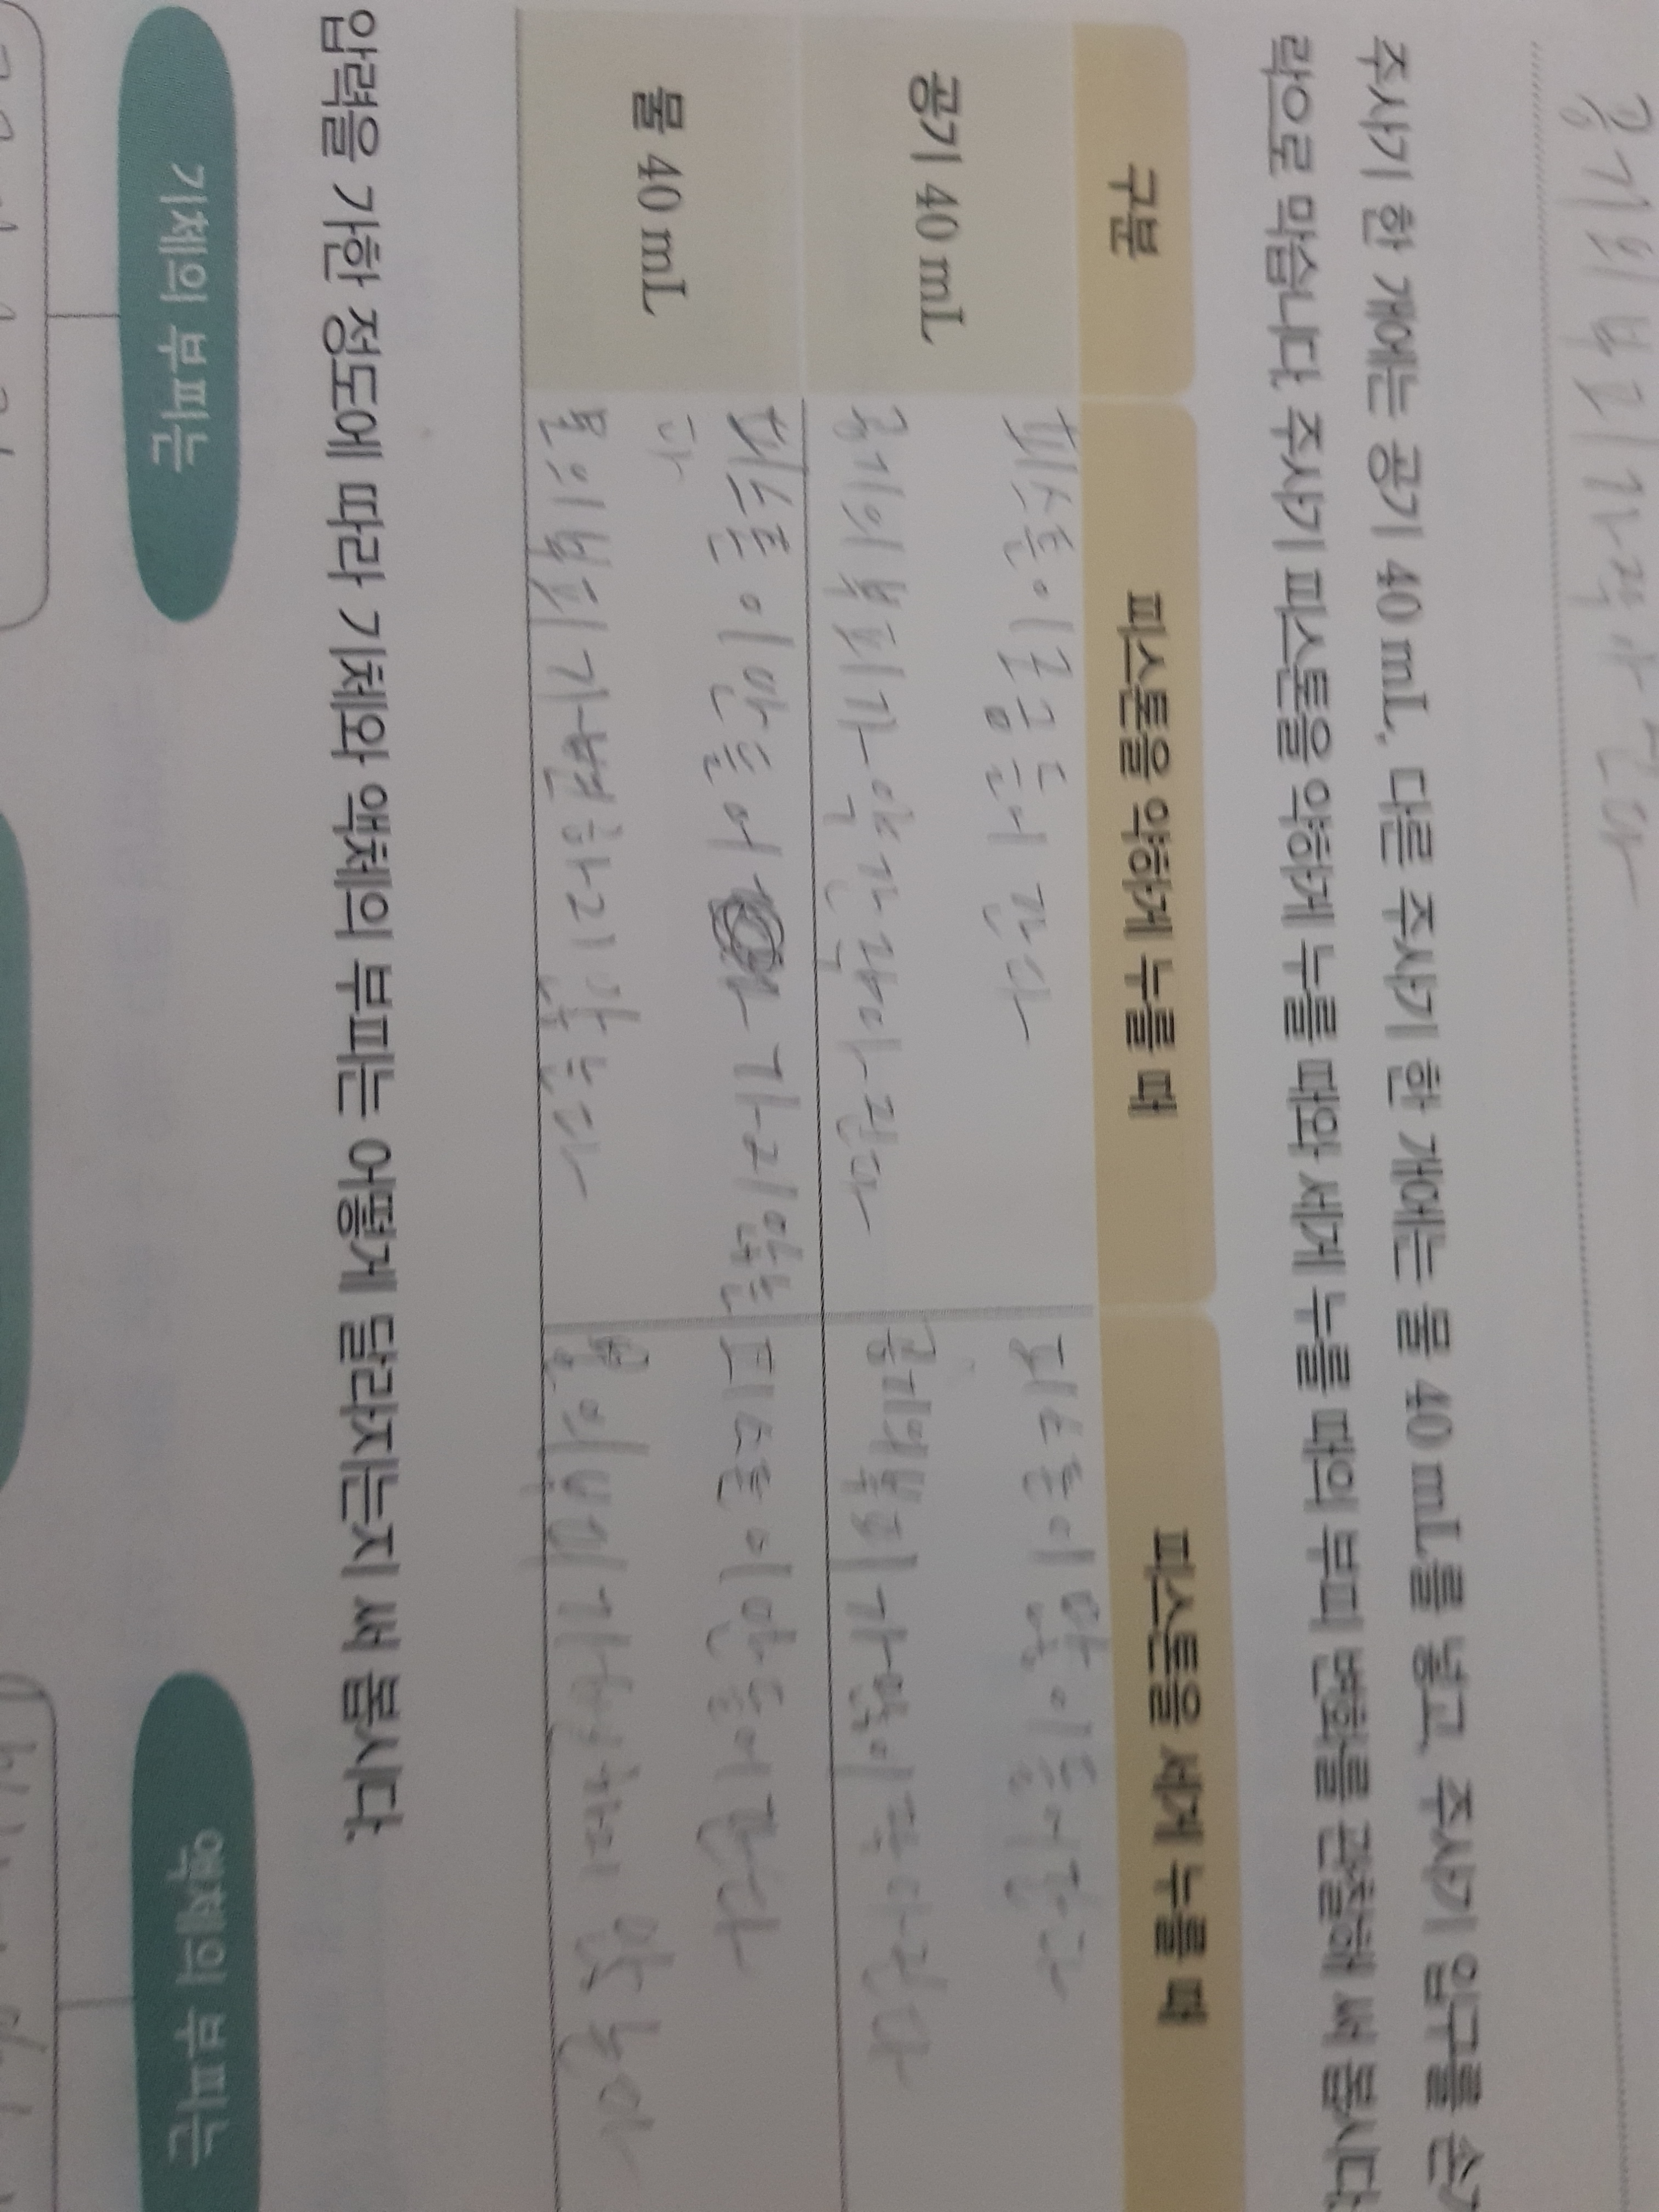 공기의 부피가 작아진다
주사기 한 개에는 공기 40 mL, 다른 주사기 한 개에는 물 40 mL를 넣고, 주사기 입구를 손가
락으로 막습니다. 주사기 피스톤을 약하게 누를 때와 세게 누를 때의 부피 변화를 관찰해 써 봅시다.
구분
피스톤을 약하게 누를 때
피스톤을 세게 누를 때
공기 40 mL
피스톤이 조금 들어간다
공기의 부피가 약간 작아진다
피스톤이 많이 들어간다
공기의 부피가 많이 작아진다
물 40 mL
피스톤이 안 들어가지 않는
다
물의 부피가 변하지 않는다
피스톤이 안 들어간다
물의 부피가 변하지 않는다
압력을 가한 정도에 따라 기체와 액체의 부피는 어떻게 달라지는지 써 봅시다.
기체의 부피는
액체의 부피는